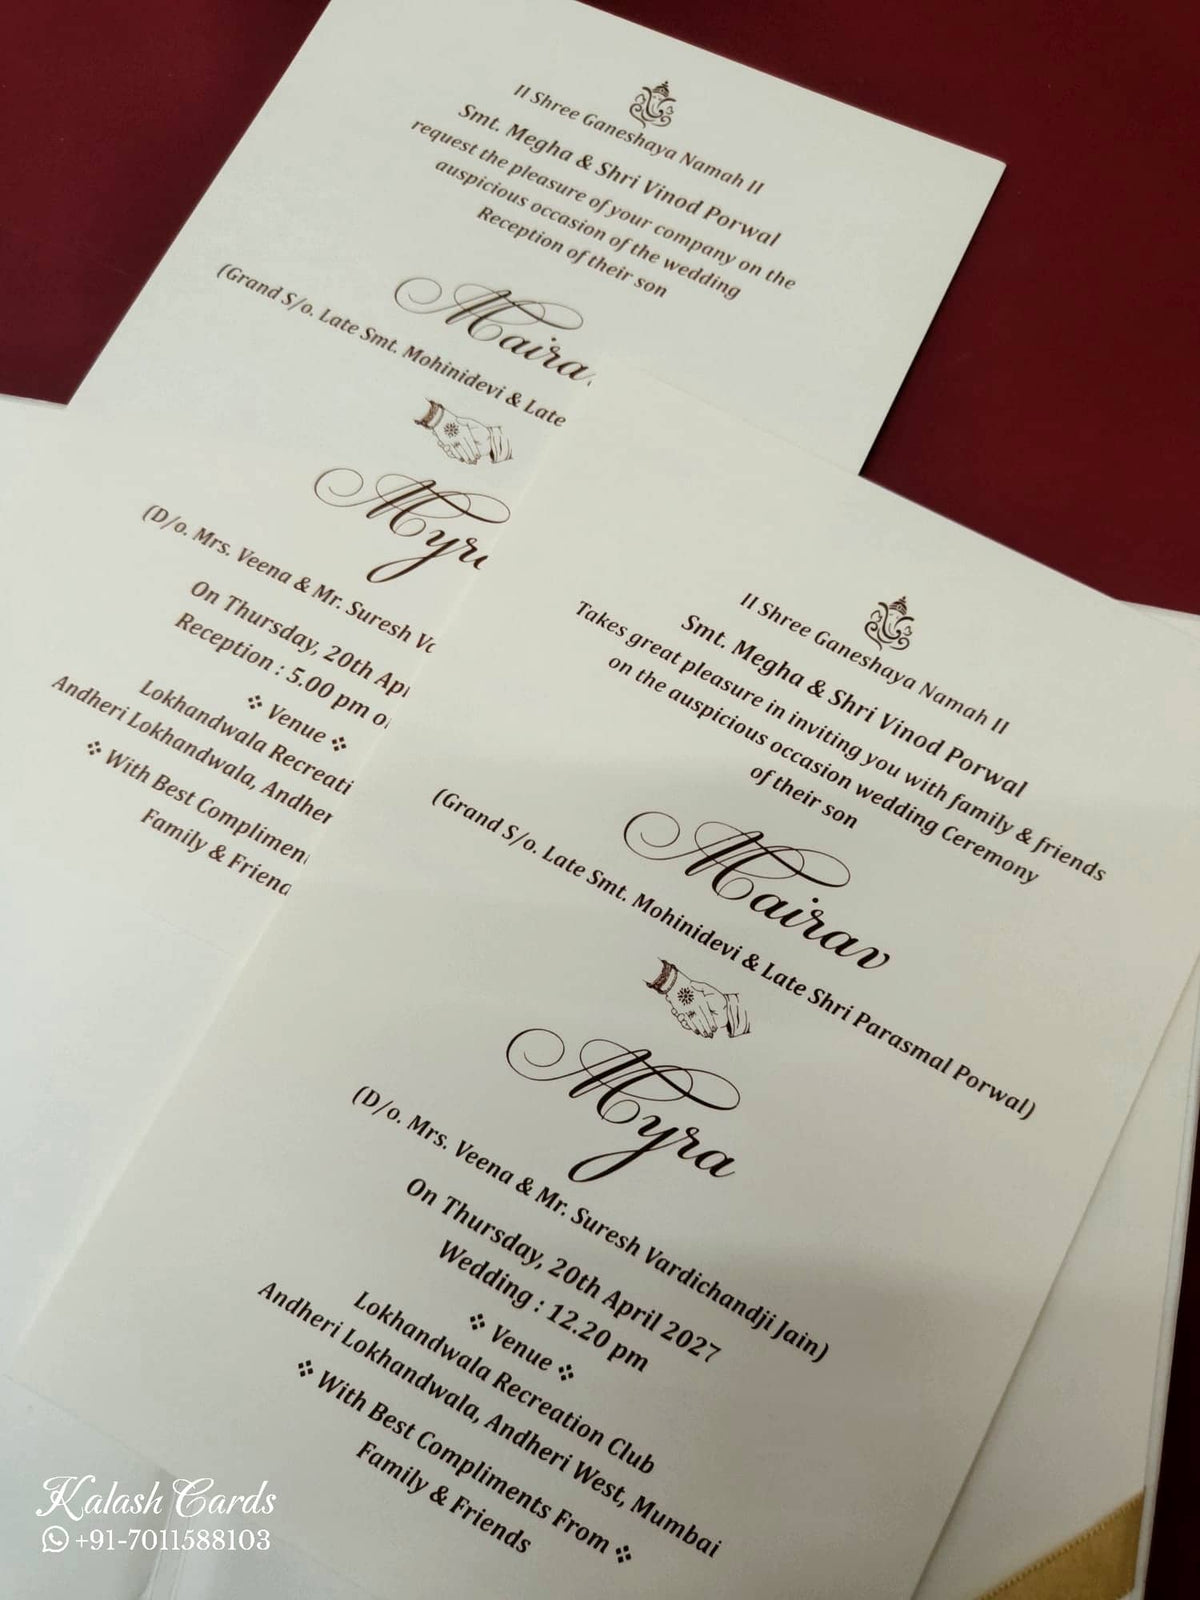 II Shree Ganeshaya Namah II
Smt. Megha & Shri Vinod Porwal
request the pleasure of your company on the
auspicious occasion of the wedding
Reception of their son
(Grand S/o. Late Smt. Mohinidevi & Late
(D/o. Mrs. Veena & Mr. Suresh
On Thursday, 20th
Reception : 5.00 pm
❖ Venue ❖
Lokhandwala
Andheri Lokhandwala,
❖ With Best
Family &
II Shree Ganeshaya Namah II
Smt. Megha & Shri Vinod Porwal
Takes great pleasure in inviting you with family & friends
on the auspicious occasion wedding Ceremony
of their son
Mairav
(Grand S/o. Late Smt. Mohinidevi & Late Shri Parasmal Porwal)
Myra
(D/o. Mrs. Veena & Mr. Suresh Vardichandji Jain)
On Thursday, 20th April 2027
Wedding : 12.20 pm
❖ Venue ❖
Lokhandwala Recreation Club
Andheri Lokhandwala, Andheri West, Mumbai
❖ With Best Compliments From ❖
Family & Friends
Kalash Cards
+91-7011588103